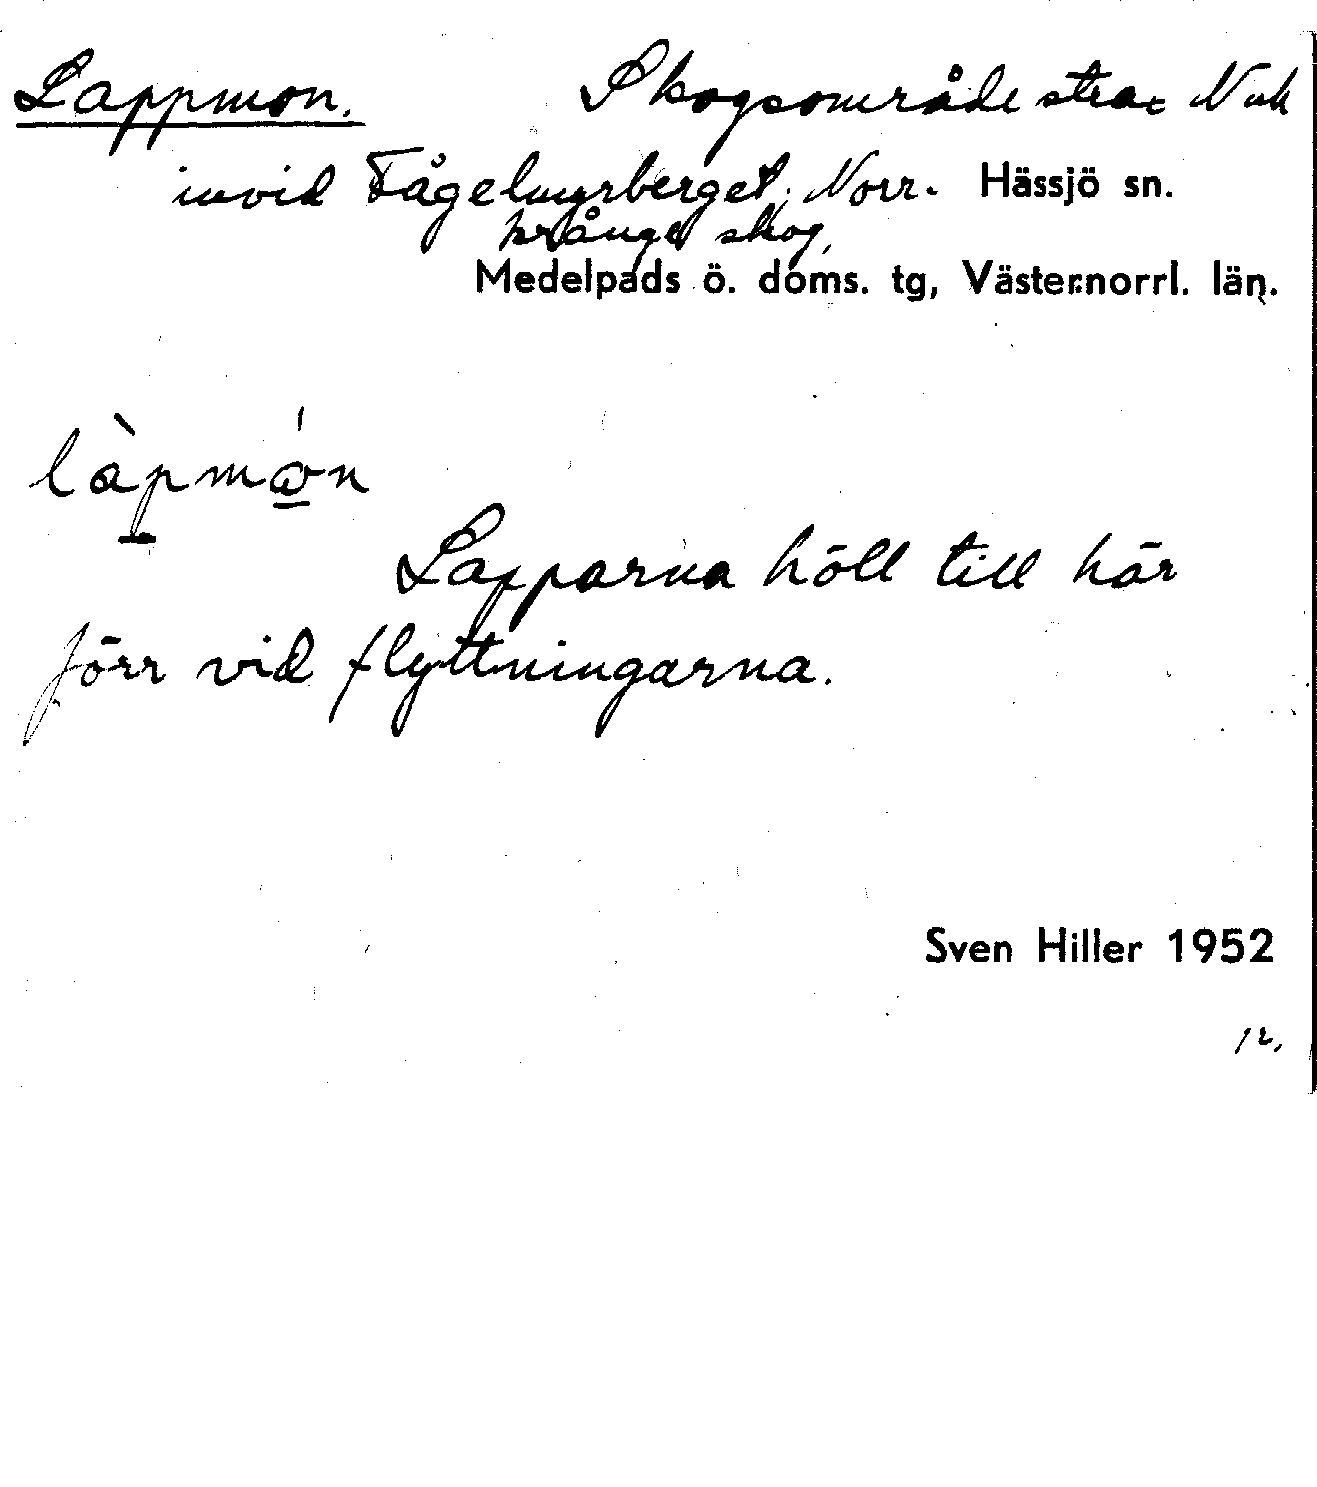 Lappmon. Skogsområde strax N och
invid Fågelmyrberget, Norr- Hässjö sn.
krånge skog,
Medelpads ö. doms. tg, Västernorrl. län.
làpmón
Lapparna höll till här
förr vid flyttningarna.
Sven Hiller 1952
12.